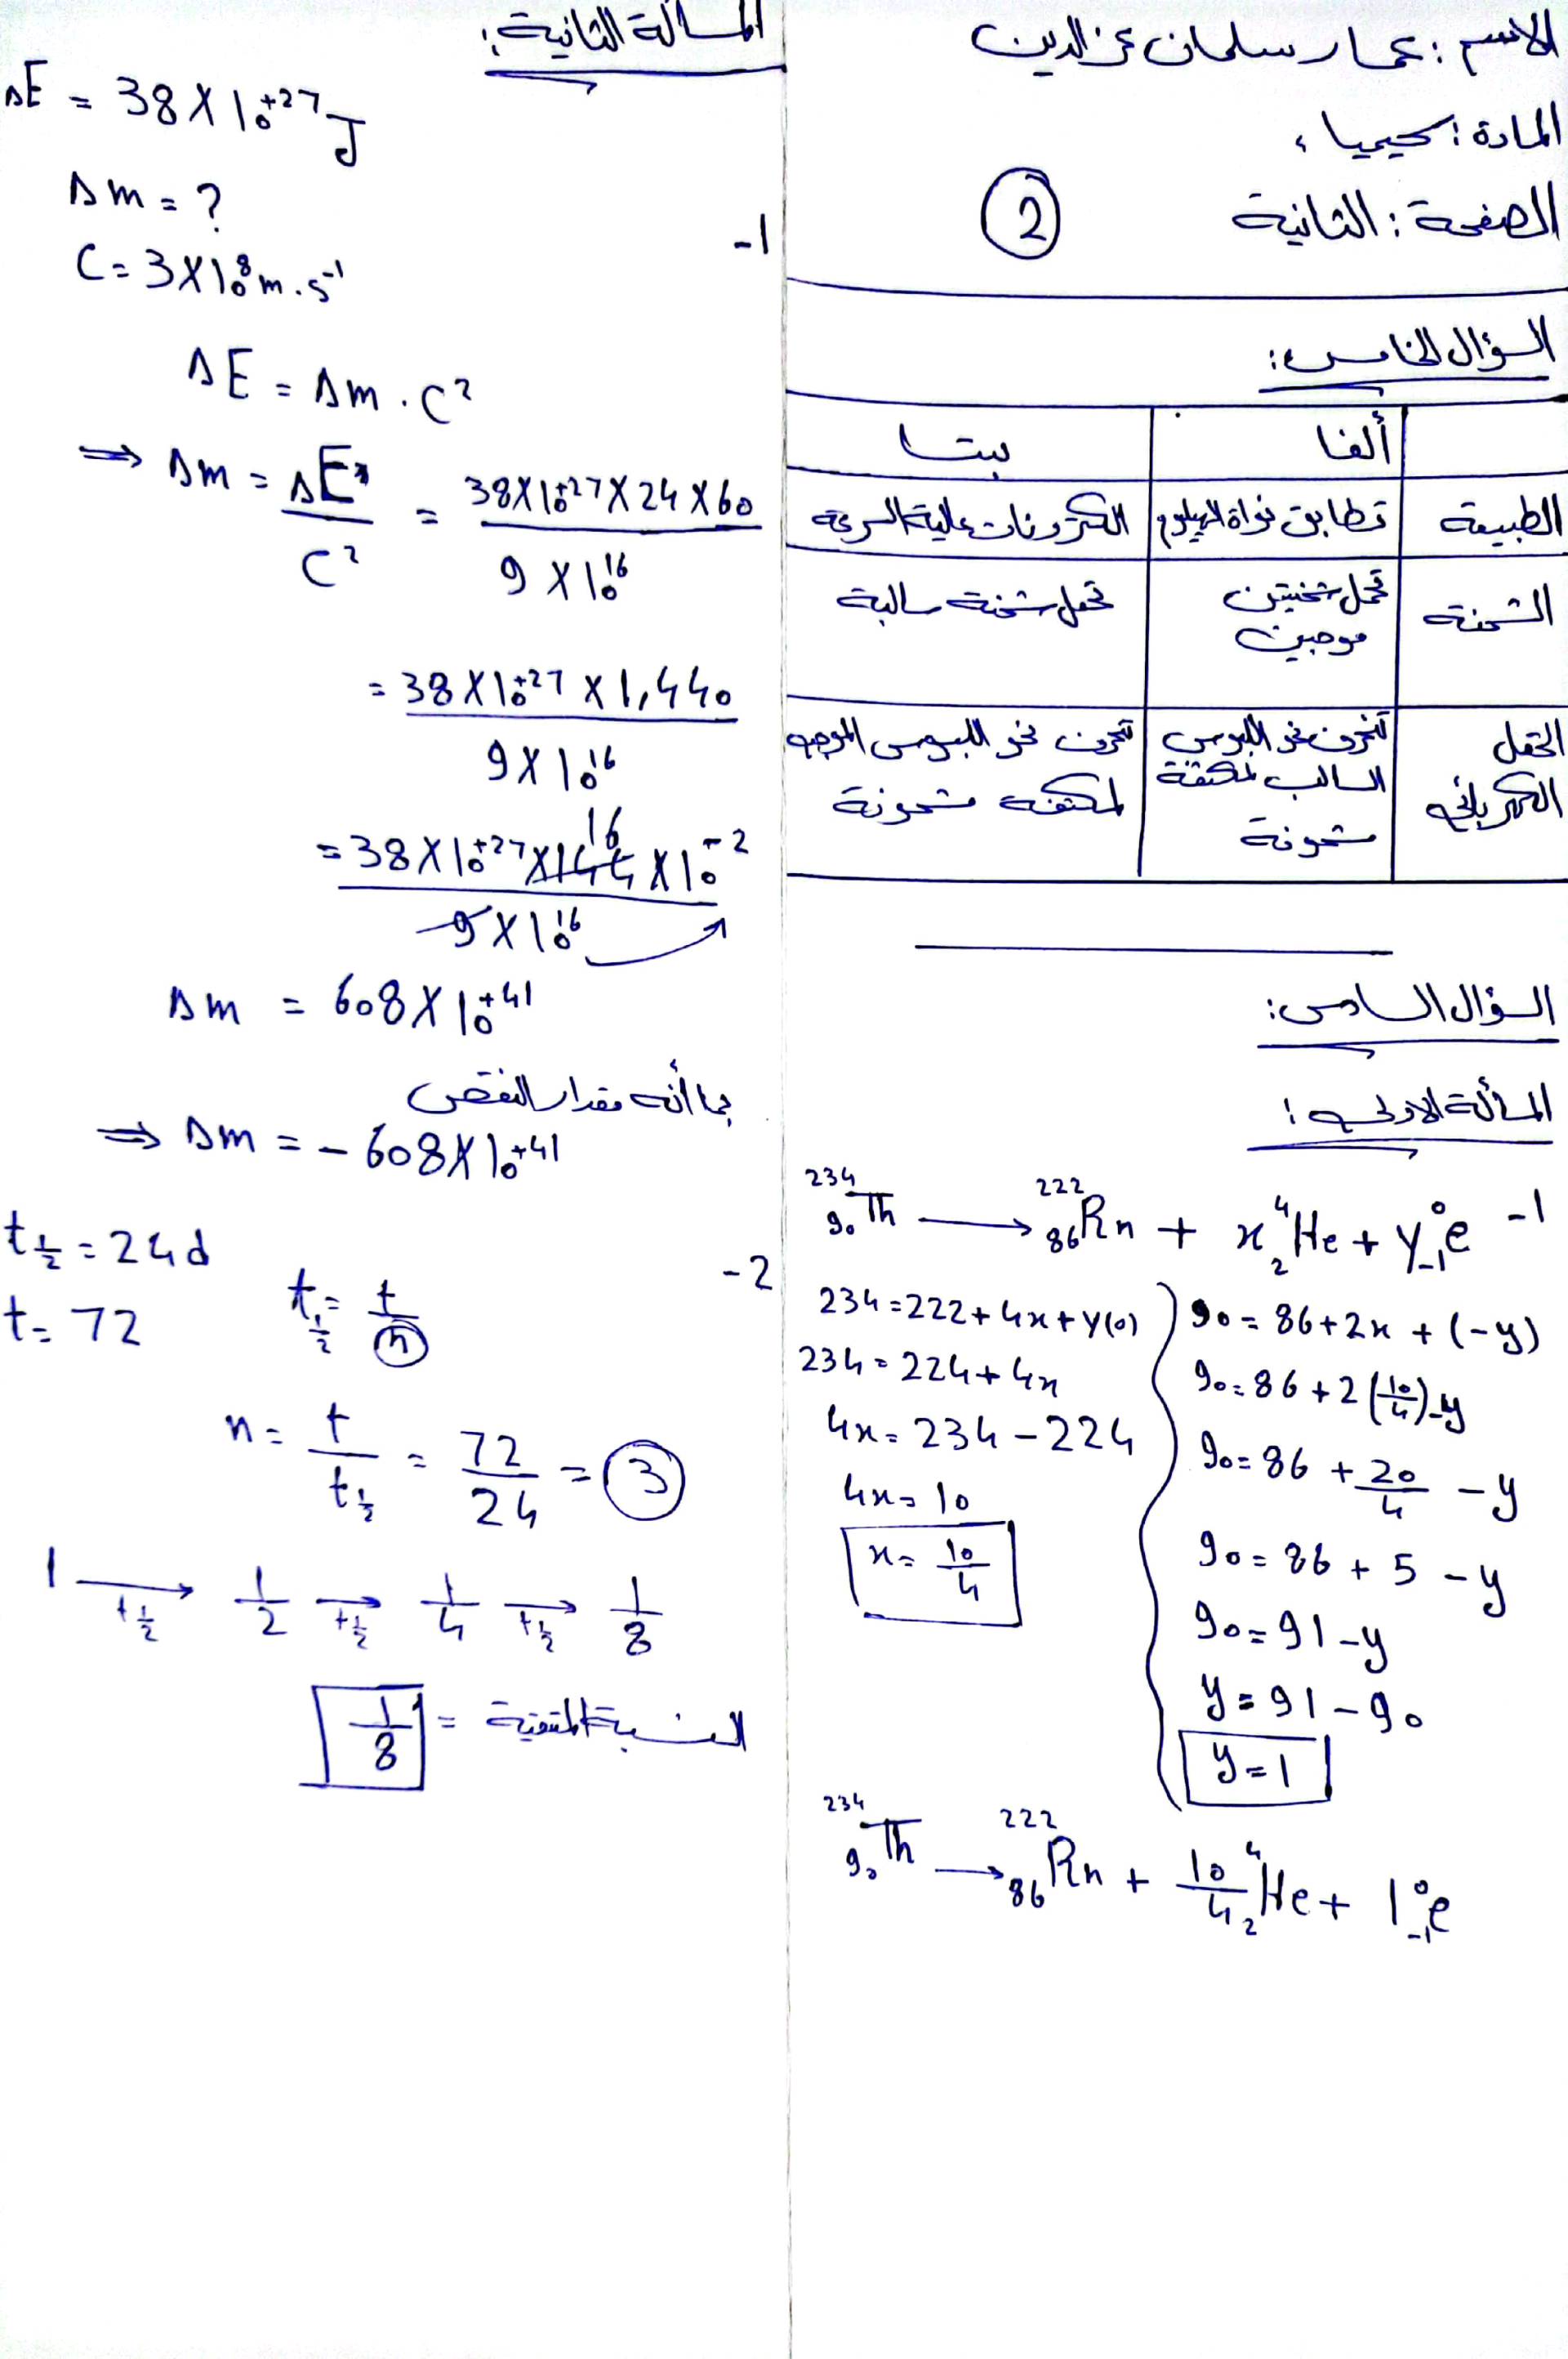 الاسم : عمار سلمان عز الدين
المادة : كيمياء
الصفحة : الثانية
2
السؤال الخامس:
ألفا
بيتا
الطبيعة
تطابق نواة الهيليوم
الكترونات عالية السرعة
الشحنة
تحمل شحنتين
موجبتين
تحمل شحنة سالبة
الحقل
الكهربائي
تنحرف نحو اللبوس
السالب لمكثفة
مشحونة
تنحرف نحو اللبوس الموجب
لمكثفة مشحونة
السؤال السادس:
المسألة الاولى :
-1
²³⁴₉₀Th → ²²²₈₆Rn + x ⁴₂He + y ⁰₋₁e
234 = 222 + 4x + y(0)
234 = 224 + 4x
4x = 234 - 224
4x = 10
x = 10/4
90 = 86 + 2x + (-y)
90 = 86 + 2(10/4) - y
90 = 86 + 20/4 - y
90 = 86 + 5 - y
90 = 91 - y
y = 91 - 90
y = 1
²³⁴₉₀Th → ²²²₈₆Rn + 10/4 ⁴₂He + 1 ⁰₋₁e
المسألة الثانية:
-1
ΔE = 38 × 10⁺²⁷ J
Δm = ?
C = 3 × 10⁸ m.s⁻¹
ΔE = Δm . C²
⇒ Δm = ΔE / C² = 38 × 10⁺²⁷ × 24 × 60 / 9 × 10¹⁶
= 38 × 10⁺²⁷ × 1,440 / 9 × 10¹⁶
= 38 × 10⁺²⁷ × 144 16 × 10⁻² / 9 × 10¹⁶
Δm = 608 × 10⁺⁴¹
بما أنه مقدار النقص
⇒ Δm = - 608 × 10⁺⁴¹
-2
t½ = 24 d
t = 72
t½ = t / n
n = t / t½ = 72 / 24 = 3
1 →t½ 1/2 →t½ 1/4 →t½ 1/8
النسبة المتبقية = 1/8